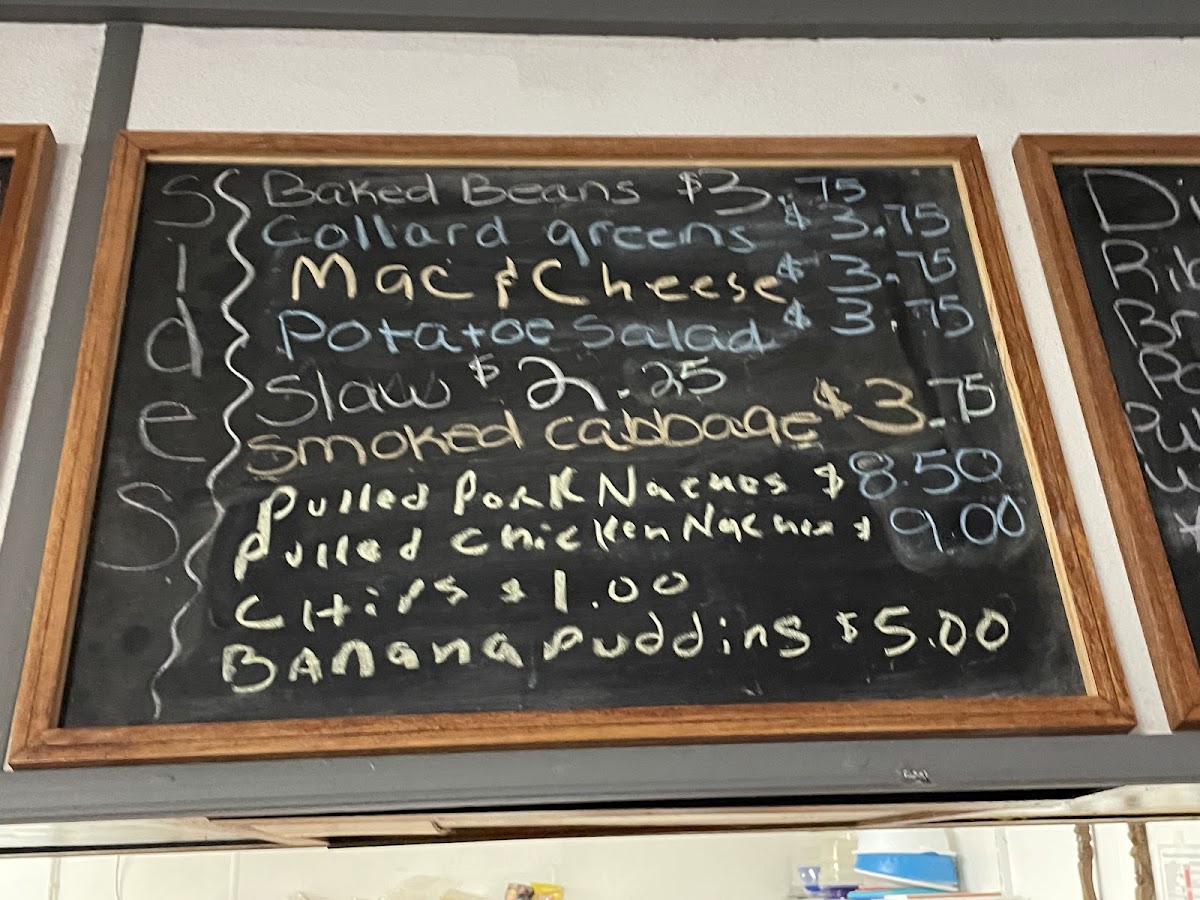 Sides
Baked Beans $3.75
Collard greens $3.75
Mac & Cheese $3.75
Potatoe Salad $3.75
Slaw $2.25
Smoked cabbage $3.75
Pulled Pork Nachos $8.50
Pulled Chicken Nachos $9.00
CHips $1.00
BANana Pudding $5.00
Di
Rib